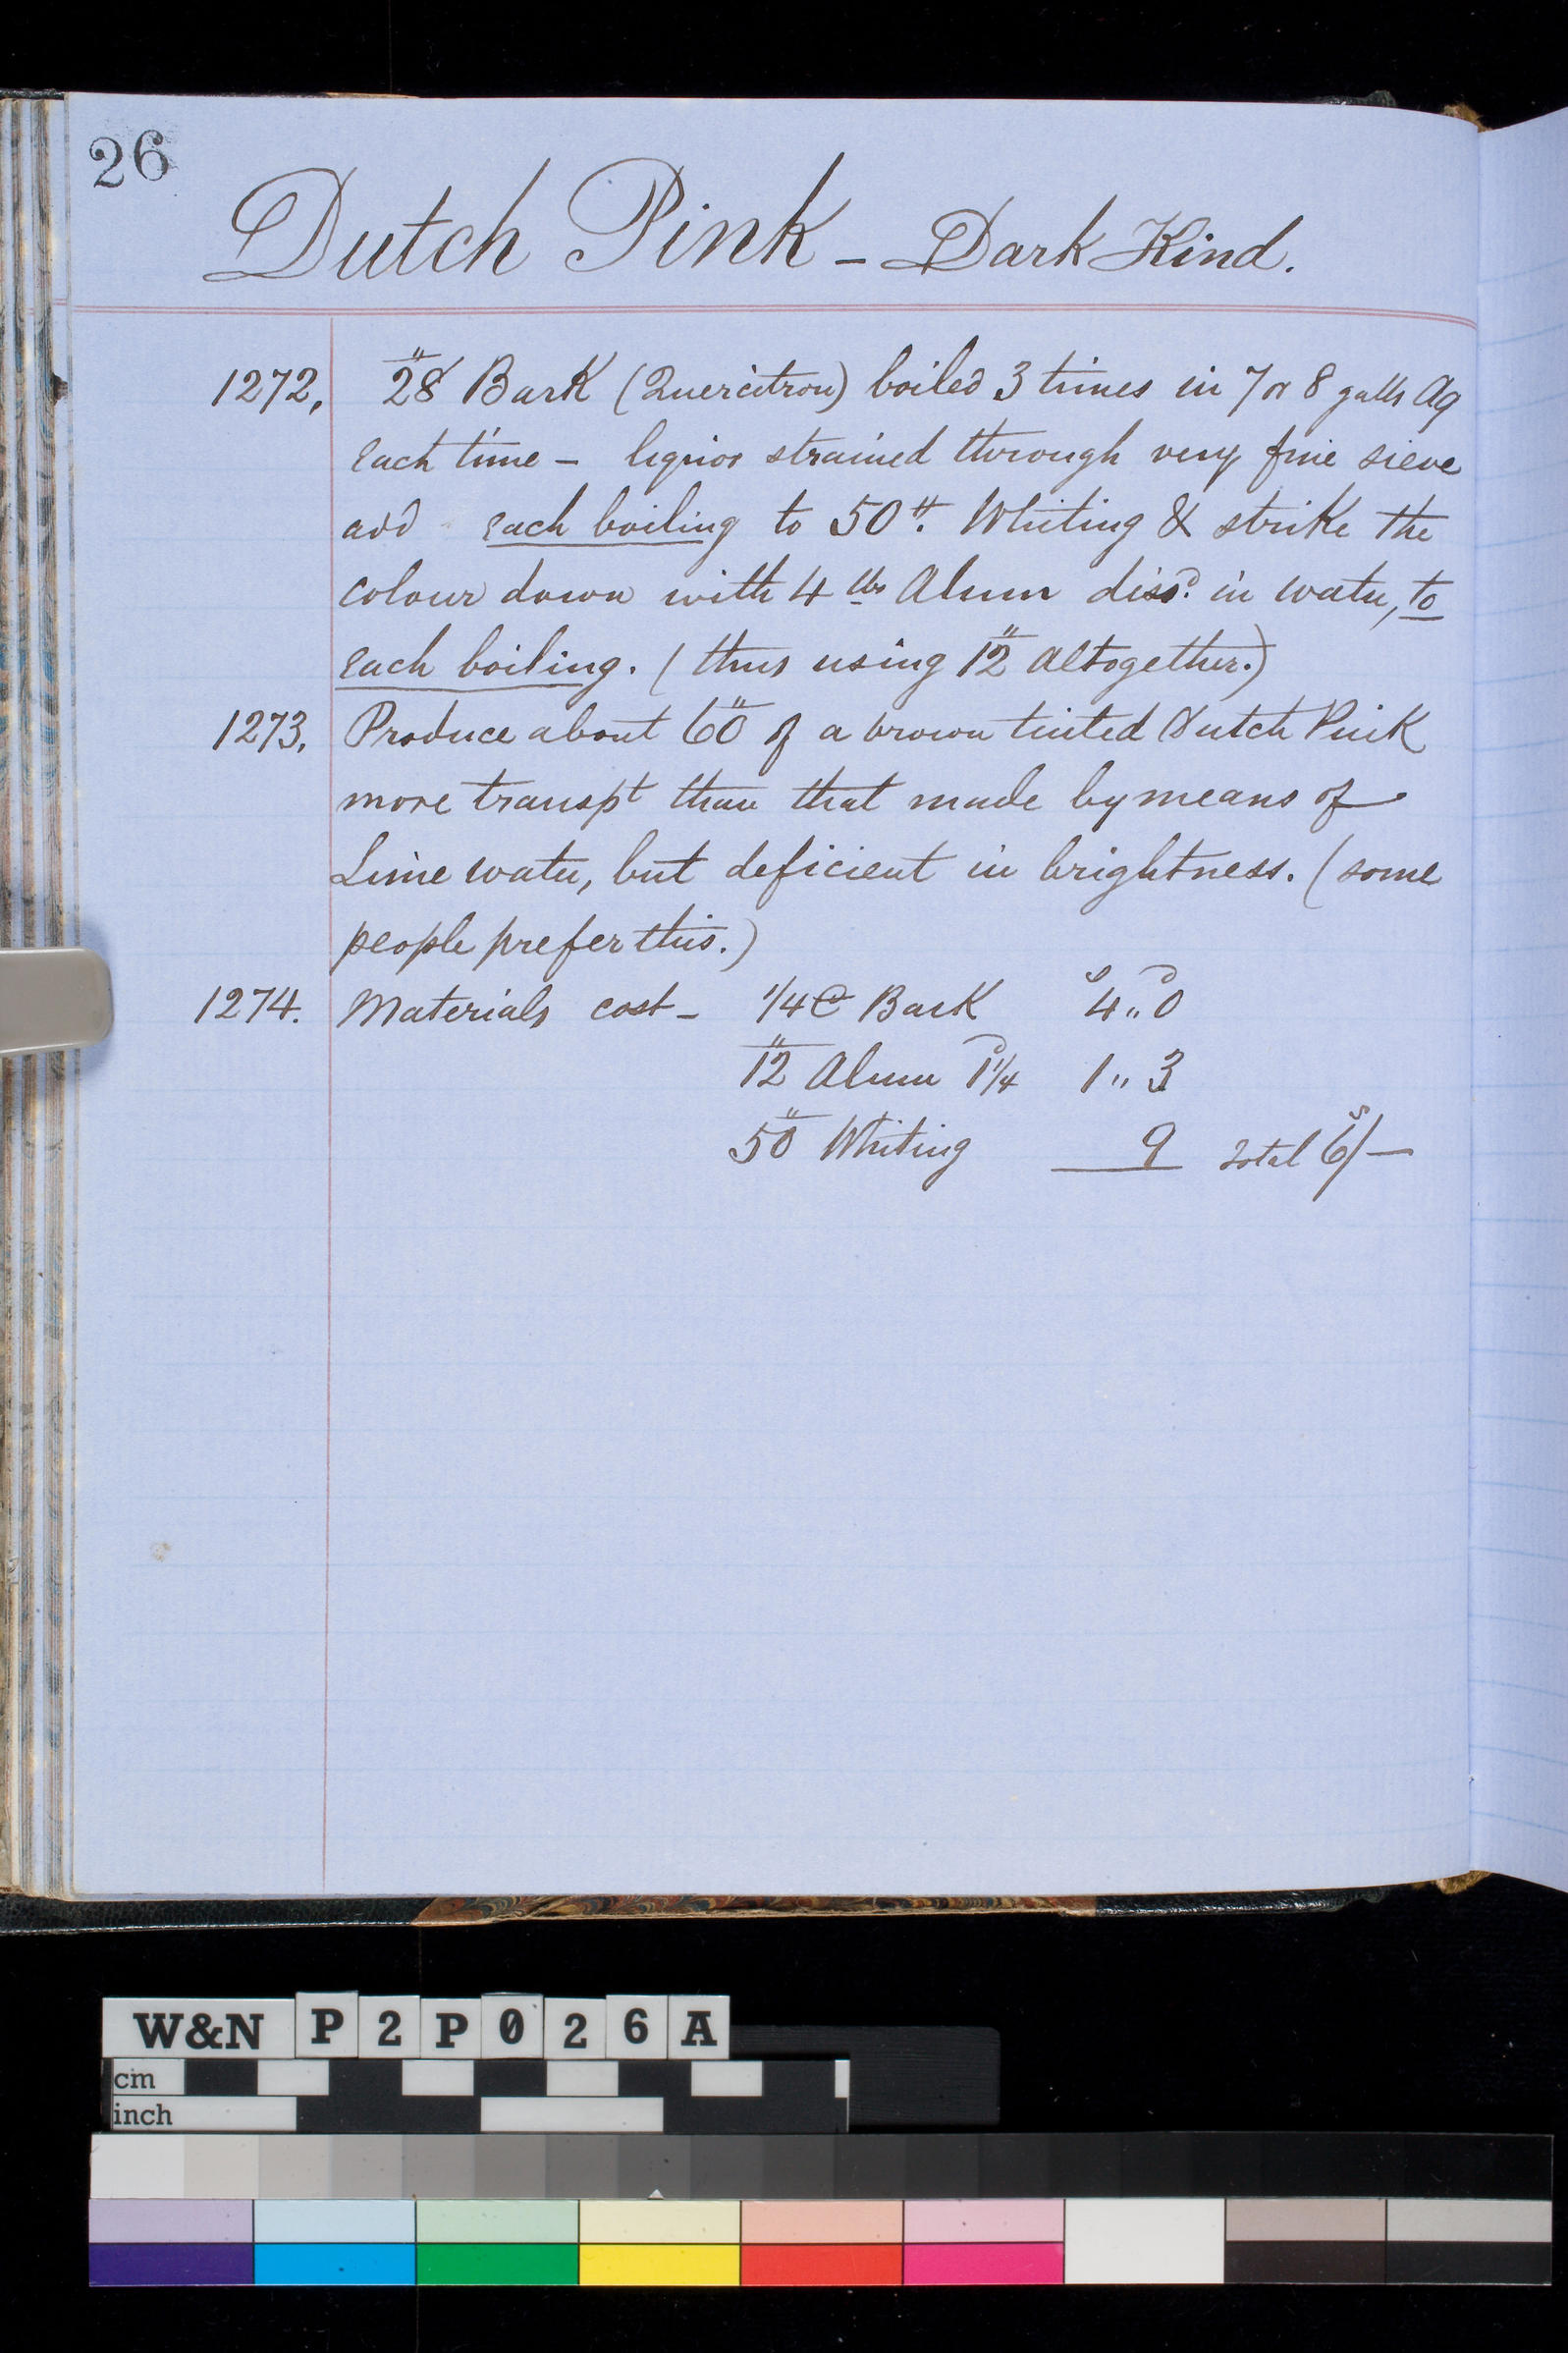 26
Dutch Pink - Dark Kind.
1272, 28" Bark (Quercitron) boiled 3 times in 7 or 8 galls Aq
each time - liquor strained through very fine sieve
add each boiling to 50". Whiting & strike the
colour down with 4 lbs Alum dissd. in water, to
each boiling. (thus using 12" altogether.)
1273, Produce about 60" of a brown tinted Dutch Pink
more transpt than that made by means of
Lime water, but deficient in brightness. (some
people prefer this.)
1274. Materials cost - 1/4 C Bark s4 ,, d0
12" Alum d1 1/4 1 ,, 3
50" Whiting 9 Total 6s/-
W&N P2P026A
cm
inch